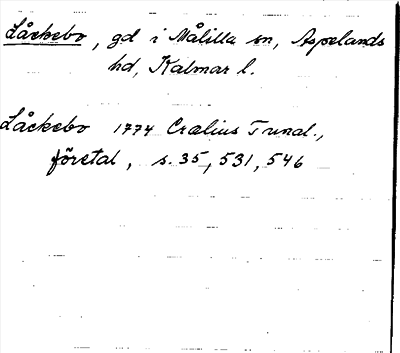 Låckebo, gd i Målilla sn, Aspelands
hd, Kalmar l.
Låckebo 1774 Cralius Tunal.,
företal, s. 35, 531, 546